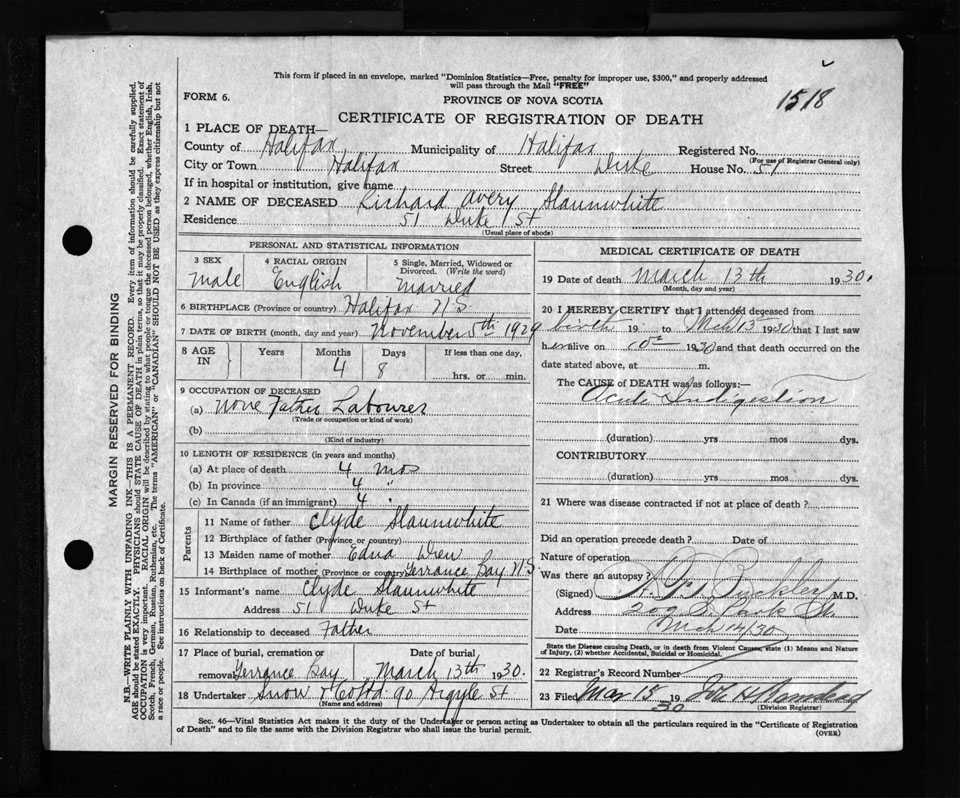 This form if placed in an envelope, marked "Dominion Statistics—Free, penalty for improper use, $300," and properly addressed
will pass through the Mail "FREE"
1518
FORM 6.
PROVINCE OF NOVA SCOTIA
CERTIFICATE OF REGISTRATION OF DEATH
1 PLACE OF DEATH—
County of Halifax Municipality of Halifax Registered No.
(For use of Registrar General only)
City or Town Halifax Street Duke House No. 51
If in hospital or institution, give name
2 NAME OF DECEASED Richard Avery Slaunwhite
Residence 51 Duke St
(Usual place of abode)
PERSONAL AND STATISTICAL INFORMATION
3 SEX
male
4 RACIAL ORIGIN
English
5 Single, Married, Widowed or
Divorced. (Write the word)
Married
6 BIRTHPLACE (Province or country) Halifax N S
7 DATE OF BIRTH (month, day and year) November 5th 1929
8 AGE
IN
Years
Months
4
Days
8
If less than one day,
hrs. or min.
9 OCCUPATION OF DECEASED
(a) None Father Labourer
(Trade or occupation or kind of work)
(b)
(Kind of industry)
10 LENGTH OF RESIDENCE (in years and months)
(a) At place of death 4 mos
(b) In province 4 "
(c) In Canada (if an immigrant) 4 "
Parents
11 Name of father Clyde Slaunwhite
12 Birthplace of father (Province or country)
13 Maiden name of mother Edna Drew
14 Birthplace of mother (Province or country) Terrance Bay N.S.
15 Informant's name Clyde Slaunwhite
Address 51 Duke St
16 Relationship to deceased Father
17 Place of burial, cremation or
removal Terrance Bay
Date of burial
March 13th 1930.
18 Undertaker Snow & Co Ltd 90 Argyle St
(Name and address)
MEDICAL CERTIFICATE OF DEATH
19 Date of death March 13th 1930.
(Month, day and year)
20 I HEREBY CERTIFY that I attended deceased from
birth 19 to Mch 13 1930 that I last saw
h alive on 1930 and that death occurred on the
date stated above, at m.
The CAUSE of DEATH was as follows:—
Acute Indigestion
(duration) yrs mos dys.
CONTRIBUTORY
(duration) yrs mos dys.
21 Where was disease contracted if not at place of death?
Did an operation precede death? Date of
Nature of operation
Was there an autopsy?
(Signed) Buckley M.D.
Address 209 S. Park St
Date Mch 14/30
State the Disease causing Death, or in death from Violent Causes, state (1) Means and Nature
of Injury, (2) whether Accidental, Suicidal or Homicidal.
22 Registrar's Record Number
23 Filed Mar 15 1930
(Division Registrar)
Sec. 46—Vital Statistics Act makes it the duty of the Undertaker or person acting as Undertaker to obtain all the particulars required in the "Certificate of Registration
of Death" and to file the same with the Division Registrar who shall issue the burial permit.
(OVER)
MARGIN RESERVED FOR BINDING
N.B.—WRITE PLAINLY WITH UNFADING INK—THIS IS A PERMANENT RECORD. Every item of information should be carefully supplied.
AGE should be stated EXACTLY. PHYSICIANS should STATE CAUSE OF DEATH in plain terms, so that it may be properly classified. Exact statement of
OCCUPATION is very important. RACIAL ORIGIN will be described by stating to what people or tongue the deceased person belonged, whether English, Irish,
Scotch, French, German, Russian, Ruthenian, etc. The terms "AMERICAN" or "CANADIAN" SHOULD NOT BE USED as they express citizenship but not
a race or people. See instructions on back of Certificate.